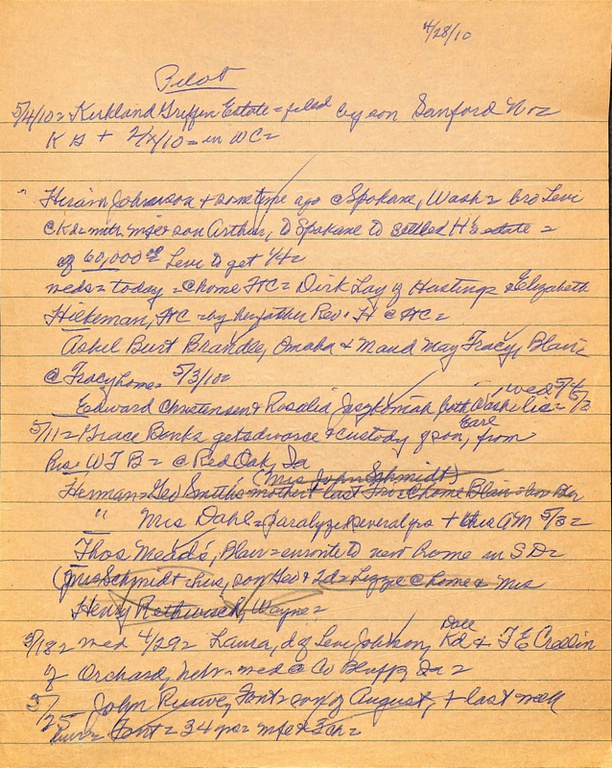 4/28/10
Pilot
5/4/10 = Kirkland Griffin Estate = filed by son Sanford N =
K B + 2/ /10 = in WC =
" Hiram Johnson + sometype ago @ Spokane, Wash = bro Levi
@ Kd = with wife & son Arthur, to Spokane to settled H's estate =
of 60,000 00 Levi to get 1/4 =
weds = today = @ home HC = Dirk Lay of Hastings & Elizabeth
Hilkeman, HC = by her father Rev. H @ HC =
Ashel Burt Brandee, Omaha & Maud May Tracy, Blair =
@ Tracy home = 5/3/10 =
Edward Christensen & Rosalia both Wash lic = 5/3, wed 5/4
5/11 = Grace Banks gets divorce & custody of son, Earl from
hus = W T B = @ Red Oak, Ia
(Mrs John Schmidt)
Herman = Geo Smith's mother + last @ home Blair =
" Mrs Dahl = paralyzed several yrs + this AM 5/3 =
Thos Meads, Blair = enroute to new home in S D =
(Mrs Schmidt = hus, son Geo & 2d = Lizzie @ home & Mrs
Henry Rethwisch, Wayne =
5/18 = wed 4/29 = Laura, d of Levi Johnson, Kd & T E Credlin
of Orchard, Nebr = wed @ Co Bluffs, Ia =
5/25 - John Font = son of August, + last week
bur = Font = 34 yrs = wife & 3 ch =